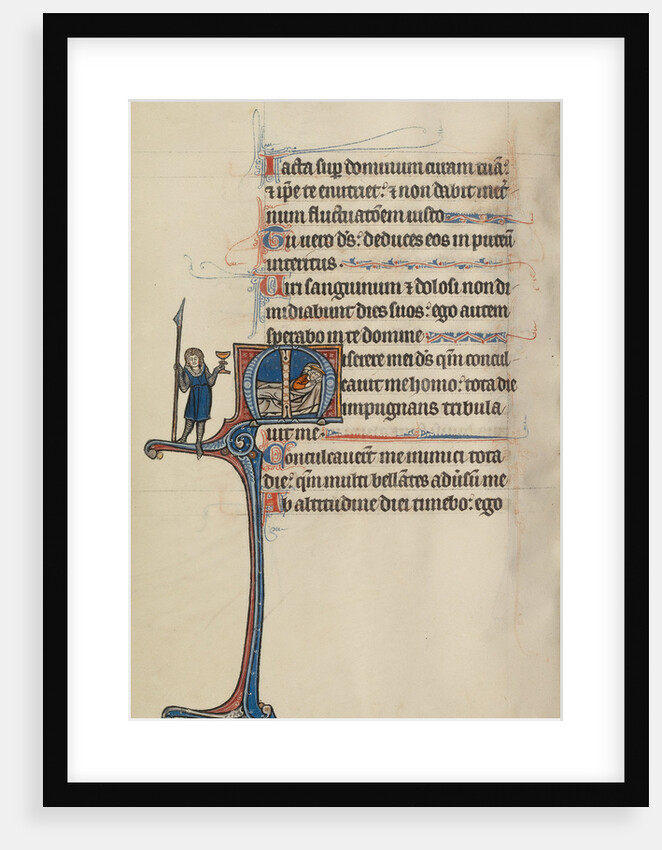 Iacta sup dominum curam tuā:
⁊ ip̄e te enutriet: ⁊ non dabit inet̾
num fluctuatōem iusto
Tu uero dſ: deduces eos in puteū
interitus.
Uiri sanguinum ⁊ dolosi non di
midiabunt dies suos: ego autem
sperabo in te domine
Miserere mei dſ qm̄ concul
cauit me homo: tota die
impugnans tribula
uit me.
Conculcauer̄t me inimici tota
die: qm̄ multi bellātes aduſū me
Ab altitudine diei timebo: ego